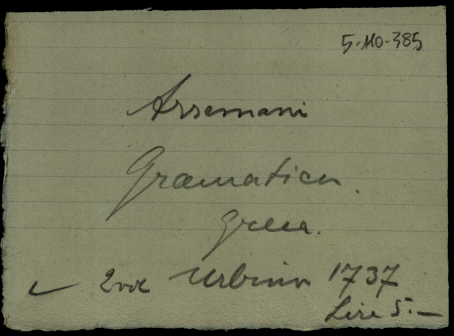 5-110-385
Arsemani
Gramatica
greca.
2 vol Urbino 1737
Lire 5.—